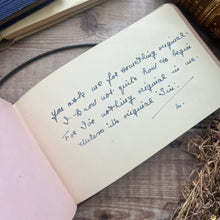 You ask me for something original.
I know not quite how to begin
For I've nothing original in me
Unless it's original Sin.